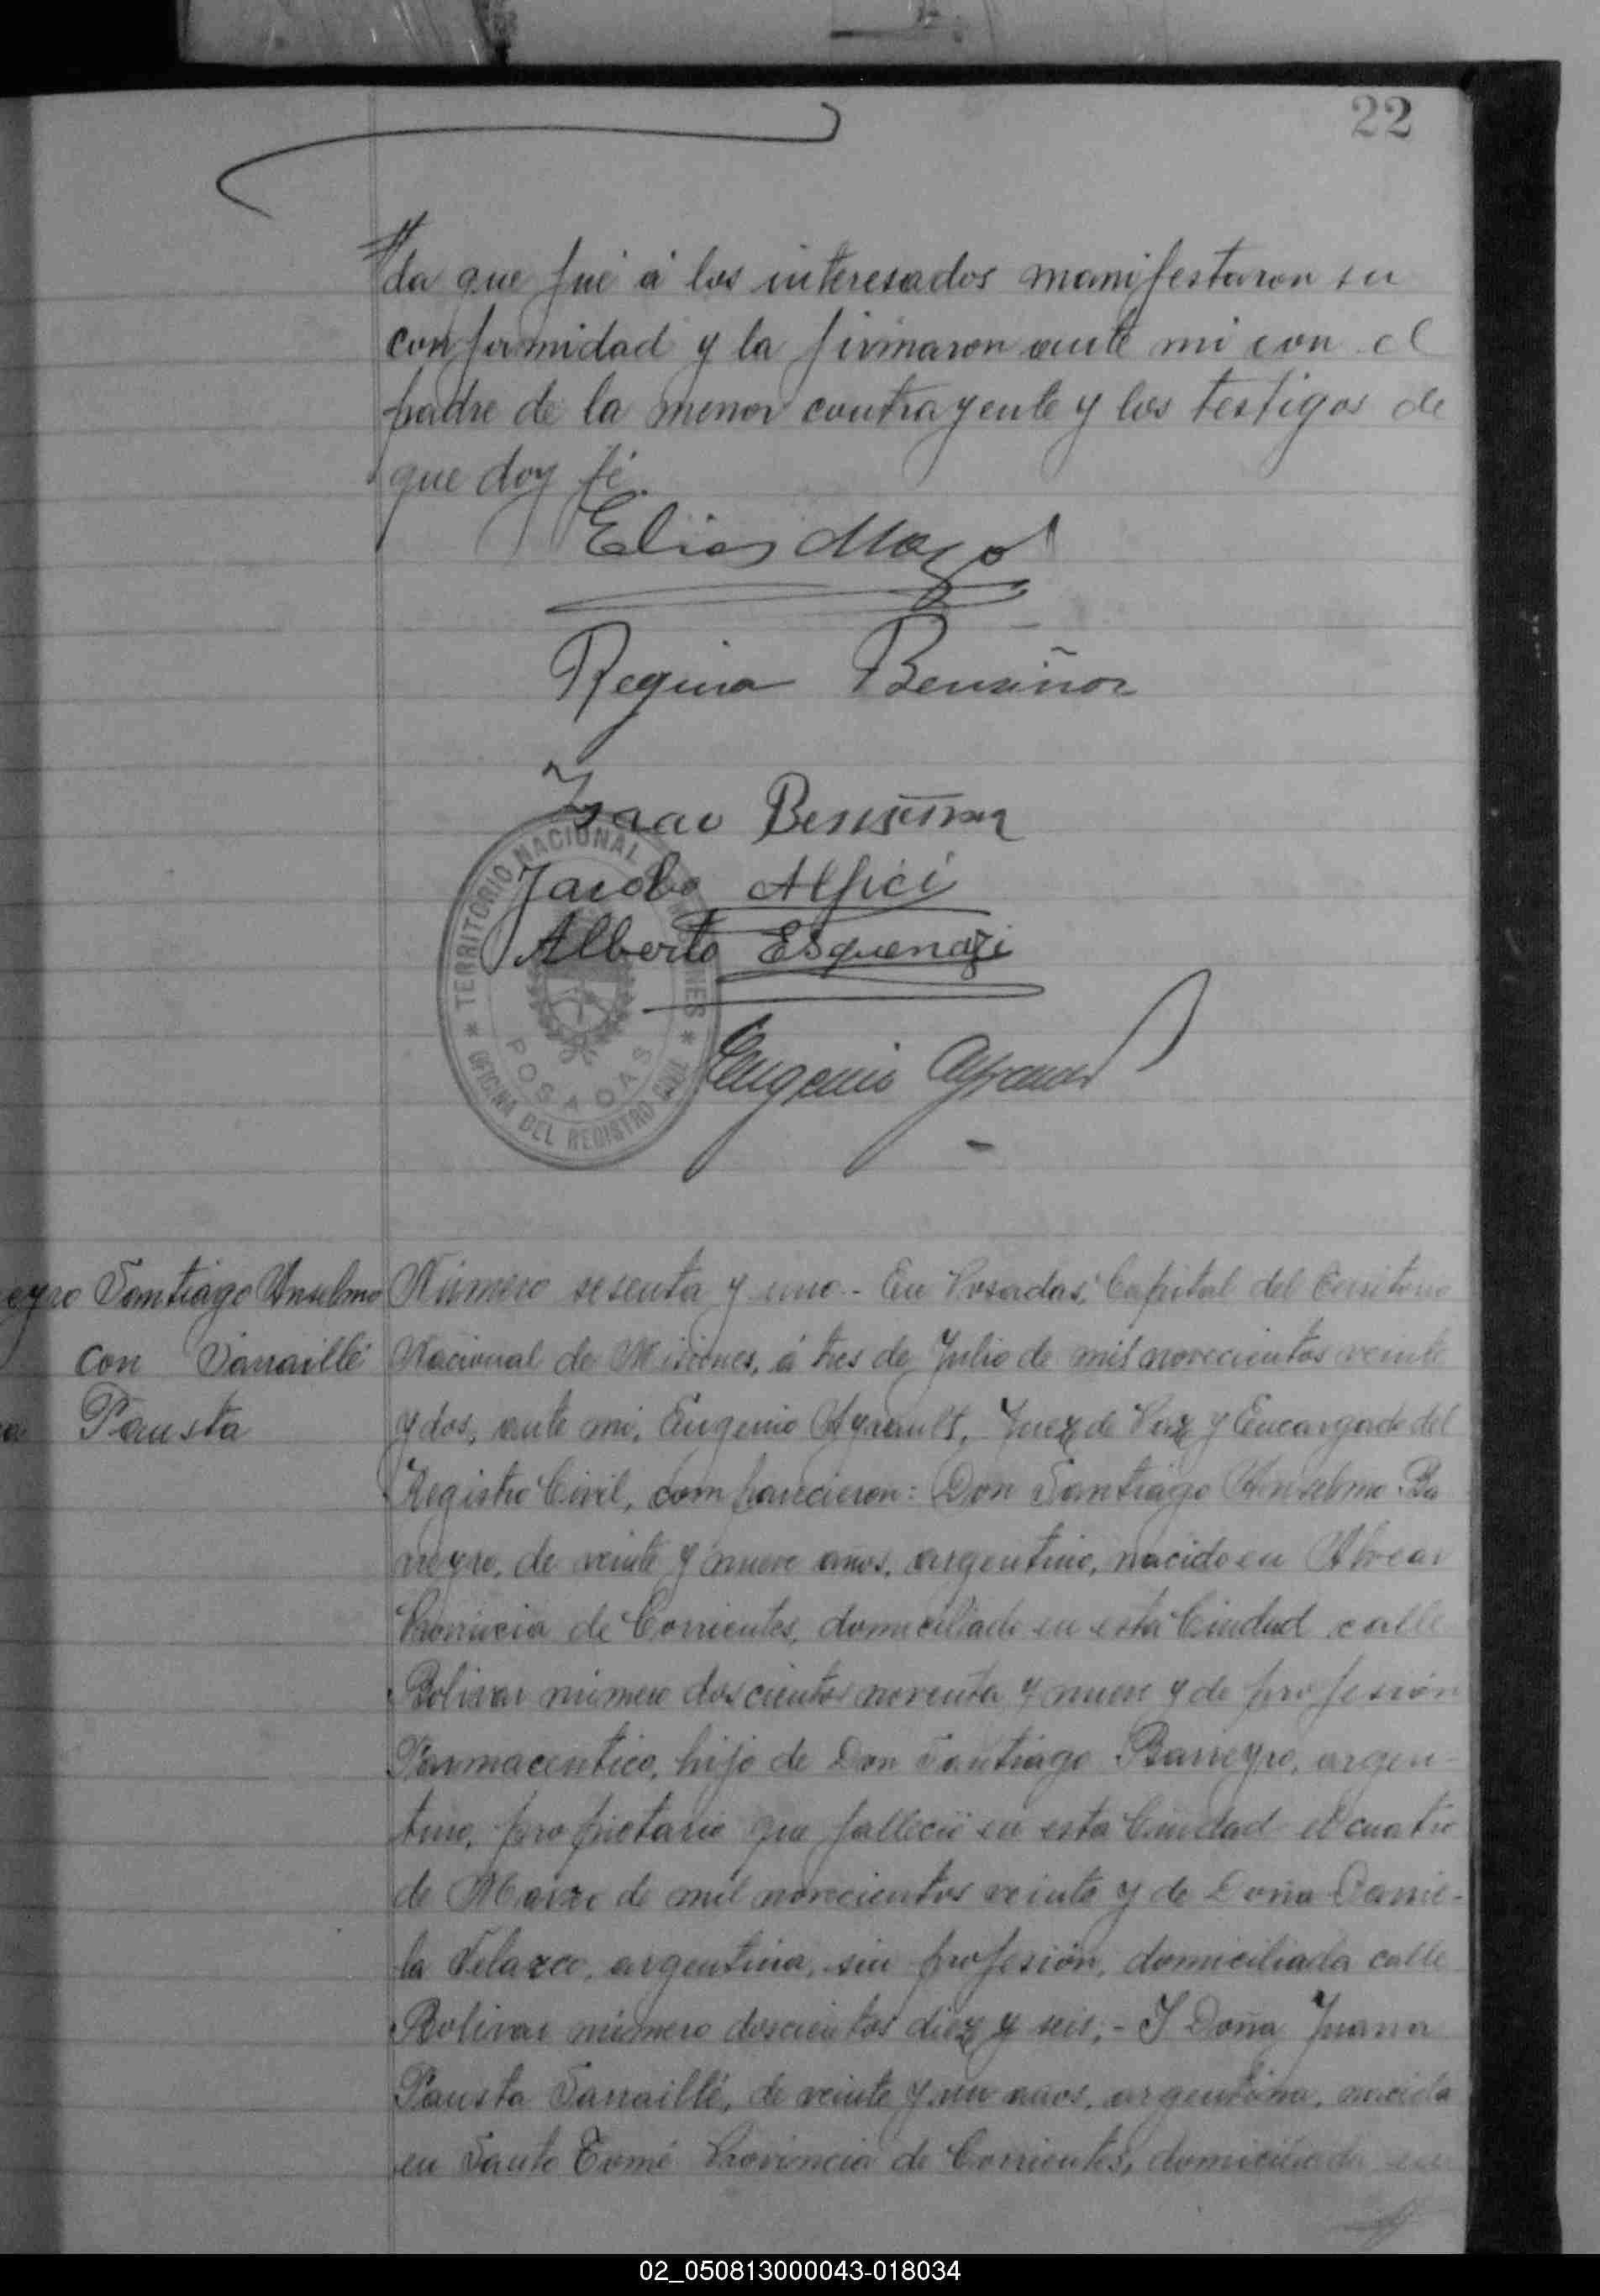 22
da que fué á los interesados manifestaron su
conformidad y la firmaron ante mi con el
padre de la menor contrayente y los testigos de
que doy fé.
Elias Mazo
Regina Benseñor
Isaac Benseñor
Jacobo Alfici
Alberto Esquenazi
Eugenio Ayrault
TERRITORIO NACIONAL DE MISIONES
POSADAS
OFICINA DEL REGISTRO CIVIL
eyro Santiago Anselmo
con Sarraillé
a Fausta
Número sesenta y uno.- En Posadas, Capital del Territorio
Nacional de Misiones, á tres de Julio de mil novecientos veinte
y dos, ante mi, Eugenio Ayrault, Juez de Paz y Encargado del
Registro Civil, comparecieron: Don Santiago Anselmo Ba
rreyro, de veinte y nueve años, argentino, nacido en Alvear
Provincia de Corrientes, domiciliado en esta Ciudad calle
Bolivar número doscientos noventa y nueve y de profesión
Farmaceutico, hijo de Don Santiago Barreyro, argen-
tino, propietario que falleció en esta Ciudad el cuatro
de Marzo de mil novecientos veinte y de Doña Danie-
la Velazco, argentina, sin profesión, domiciliada calle
Bolivar número doscientos diez y seis;- Y Doña Juana
Fausta Sarraillé, de veinte y un años, argentina, nacida
en Santo Tomé Provincia de Corrientes, domiciliada en
02_050813000043-018034